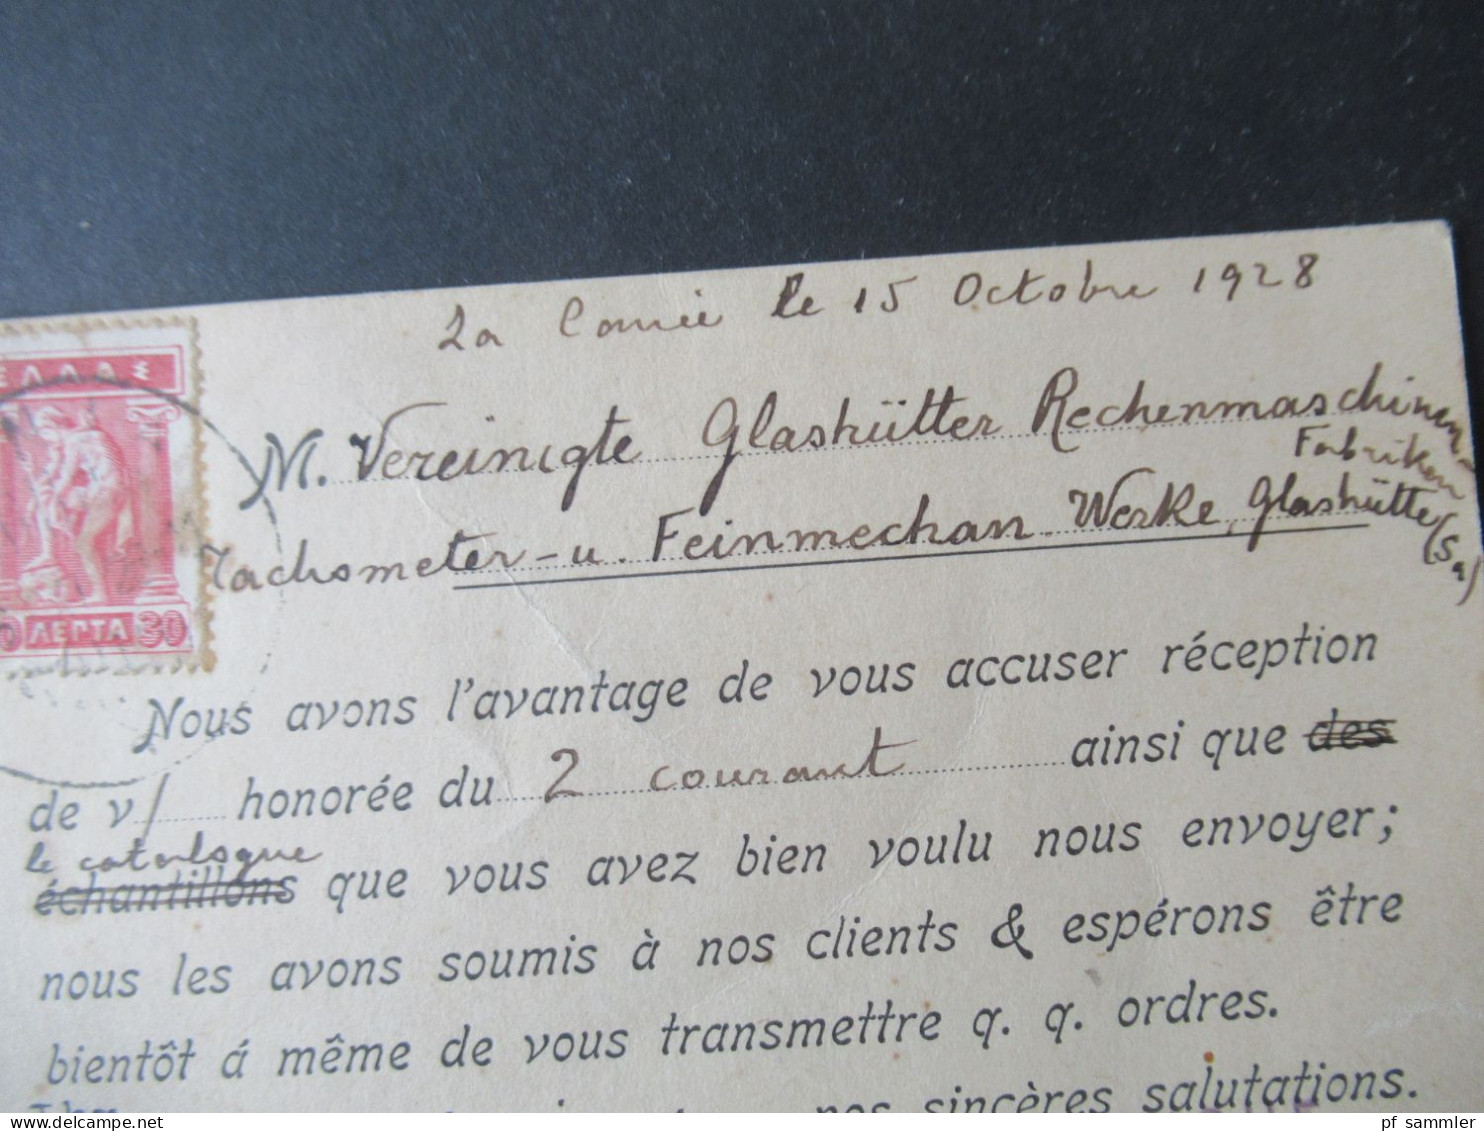 La Canée le 15 Octobre 1928
ΕΛΛΑΣ
M. Vereinigte Glashütter Rechenmaschinen
Fabriken
Tachometer - u. Feinmechan. Werke, Glashütte (Sa)
ΛΕΠΤΑ 30
Nous avons l'avantage de vous accuser réception
de v/ honorée du 2 courant ainsi que des
le catalogue
échantillons que vous avez bien voulu nous envoyer;
nous les avons soumis à nos clients & espérons être
bientôt á même de vous transmettre q. q. ordres.
nos sincères salutations.
pf_sammler